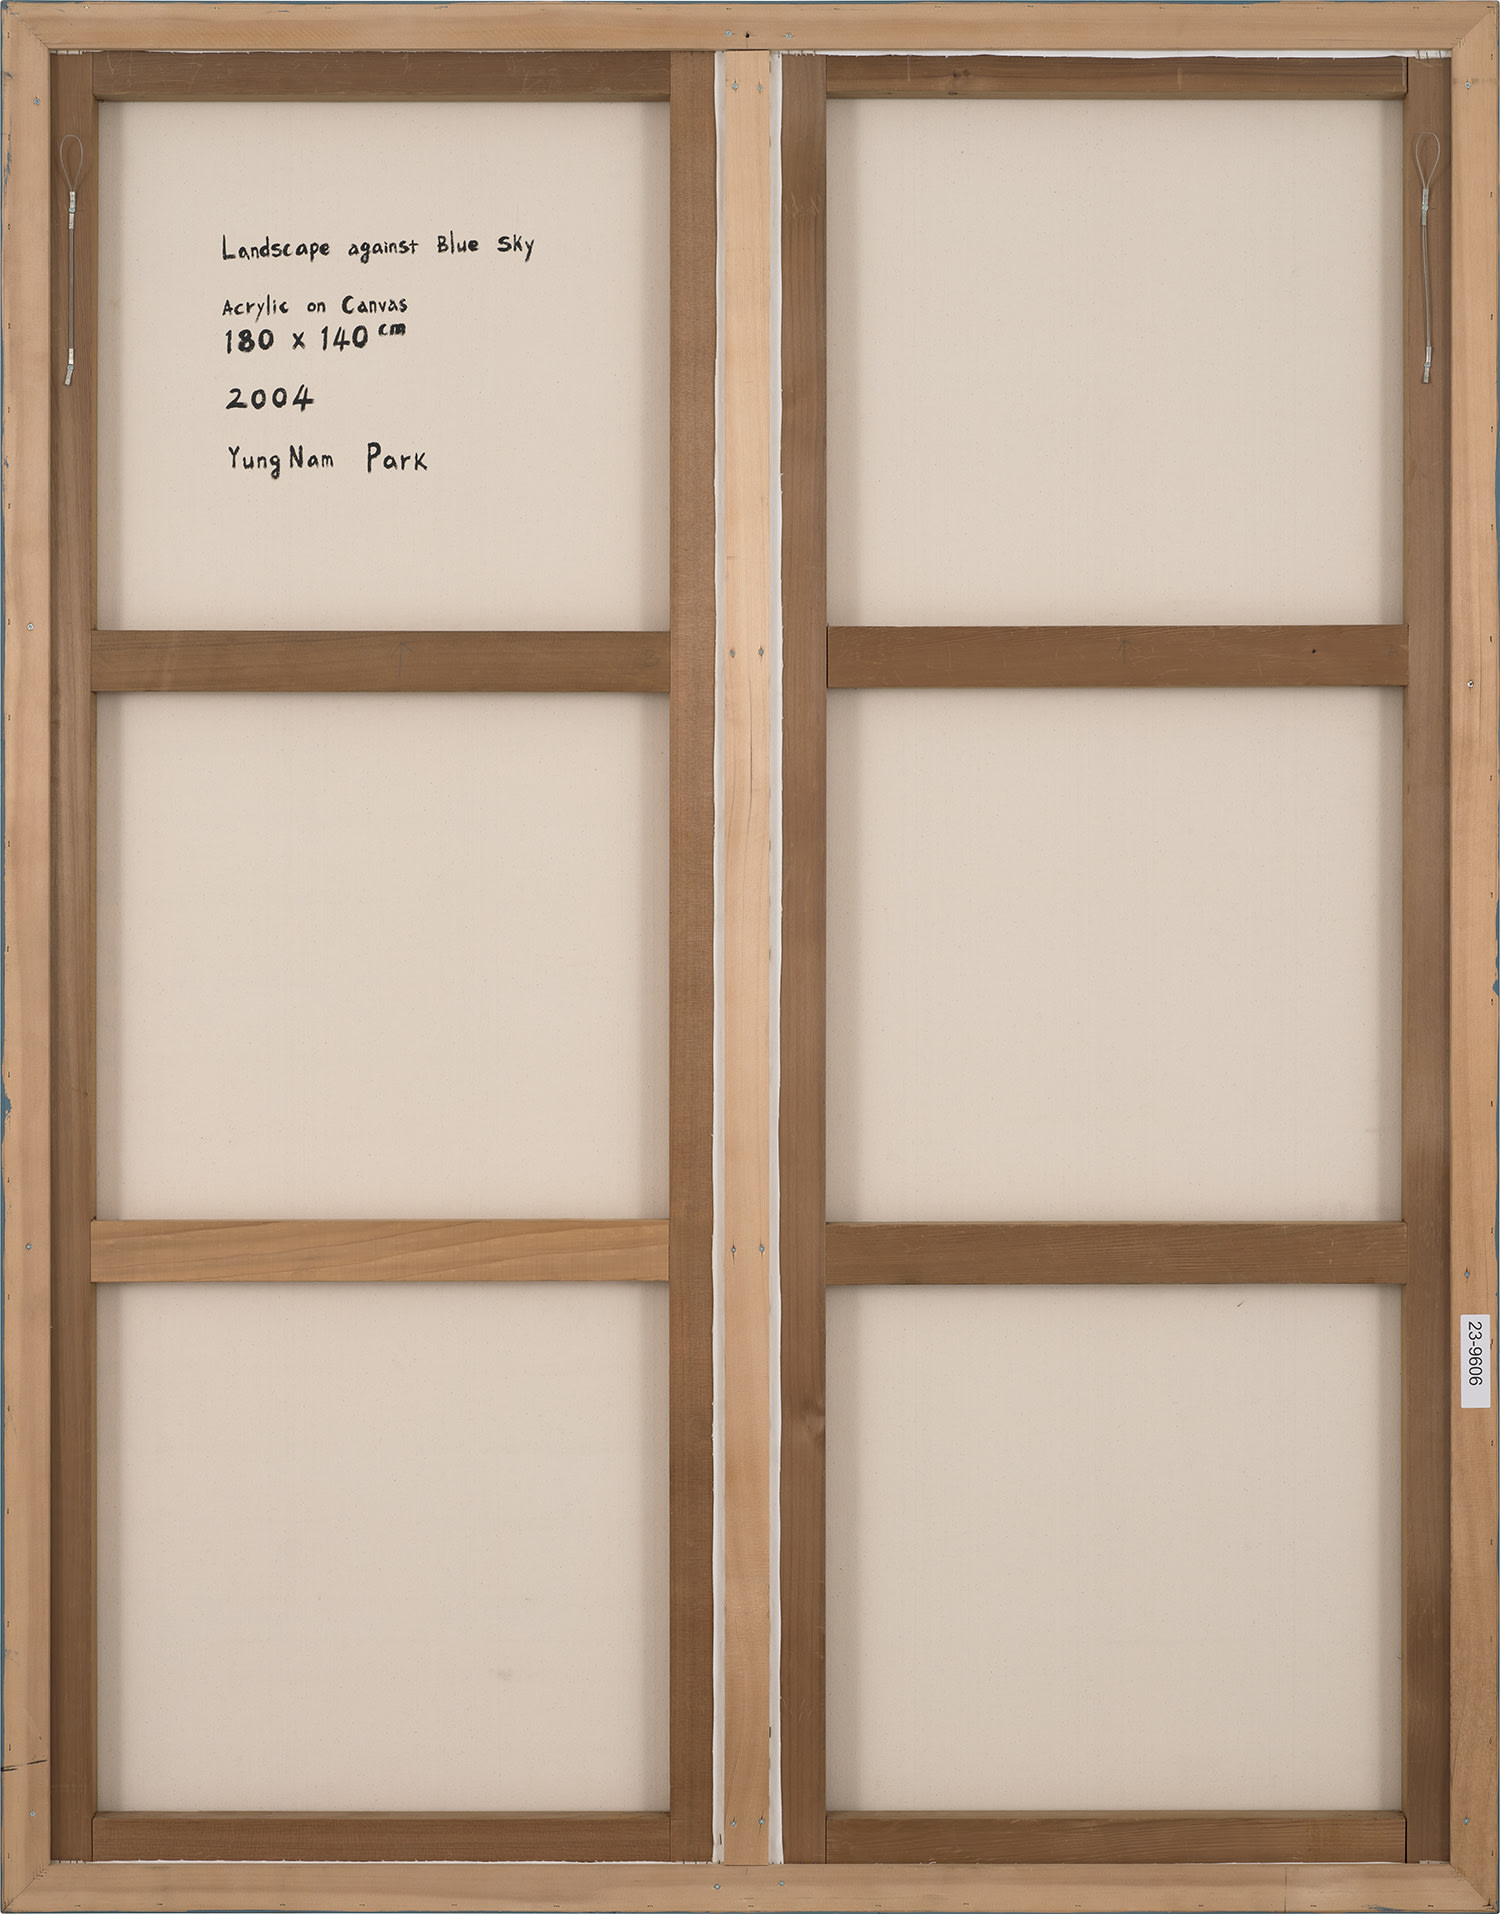 Landscape against Blue Sky
Acrylic on Canvas
180 x 140 cm
2004
Yung Nam Park
23-9606